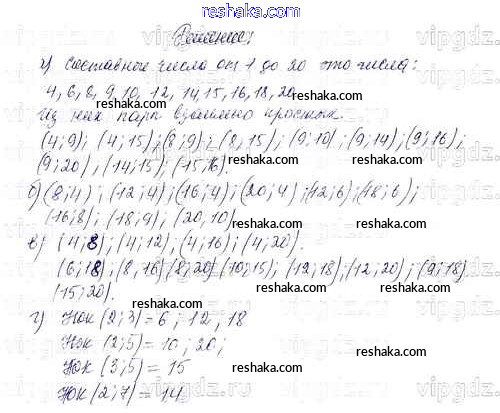 reshaka.com
Решение:
а) Составные числа от 1 до 20 это числа:
4, 6, 8, 9, 10, 12, 14, 15, 16, 18, 20
reshaka.com
Из них пары взаимно простых.
(4;9); (4;15); (8;9); (8;15); (9;10); (9;14); (9;16);
(9;20), (14;15); (15;16).
reshaka.com
б) (8;4); (12;4); (16;4); (20;4); (12;6); (18;6);
(16;8); (18;9); (20,10)
reshaka.com
в) (4;8); (4;12); (4;16); (4;20).
(6;18); (8,16) (8;20) (10;15); (12,18); (12;20); (9;18)
(15;20).
reshaka.com
г) НОК (2;3) = 6; 12, 18
НОК (2;5) = 10; 20;
НОК (3;5) = 15
reshaka.com
НОК (2;7) = 14
reshaka.com